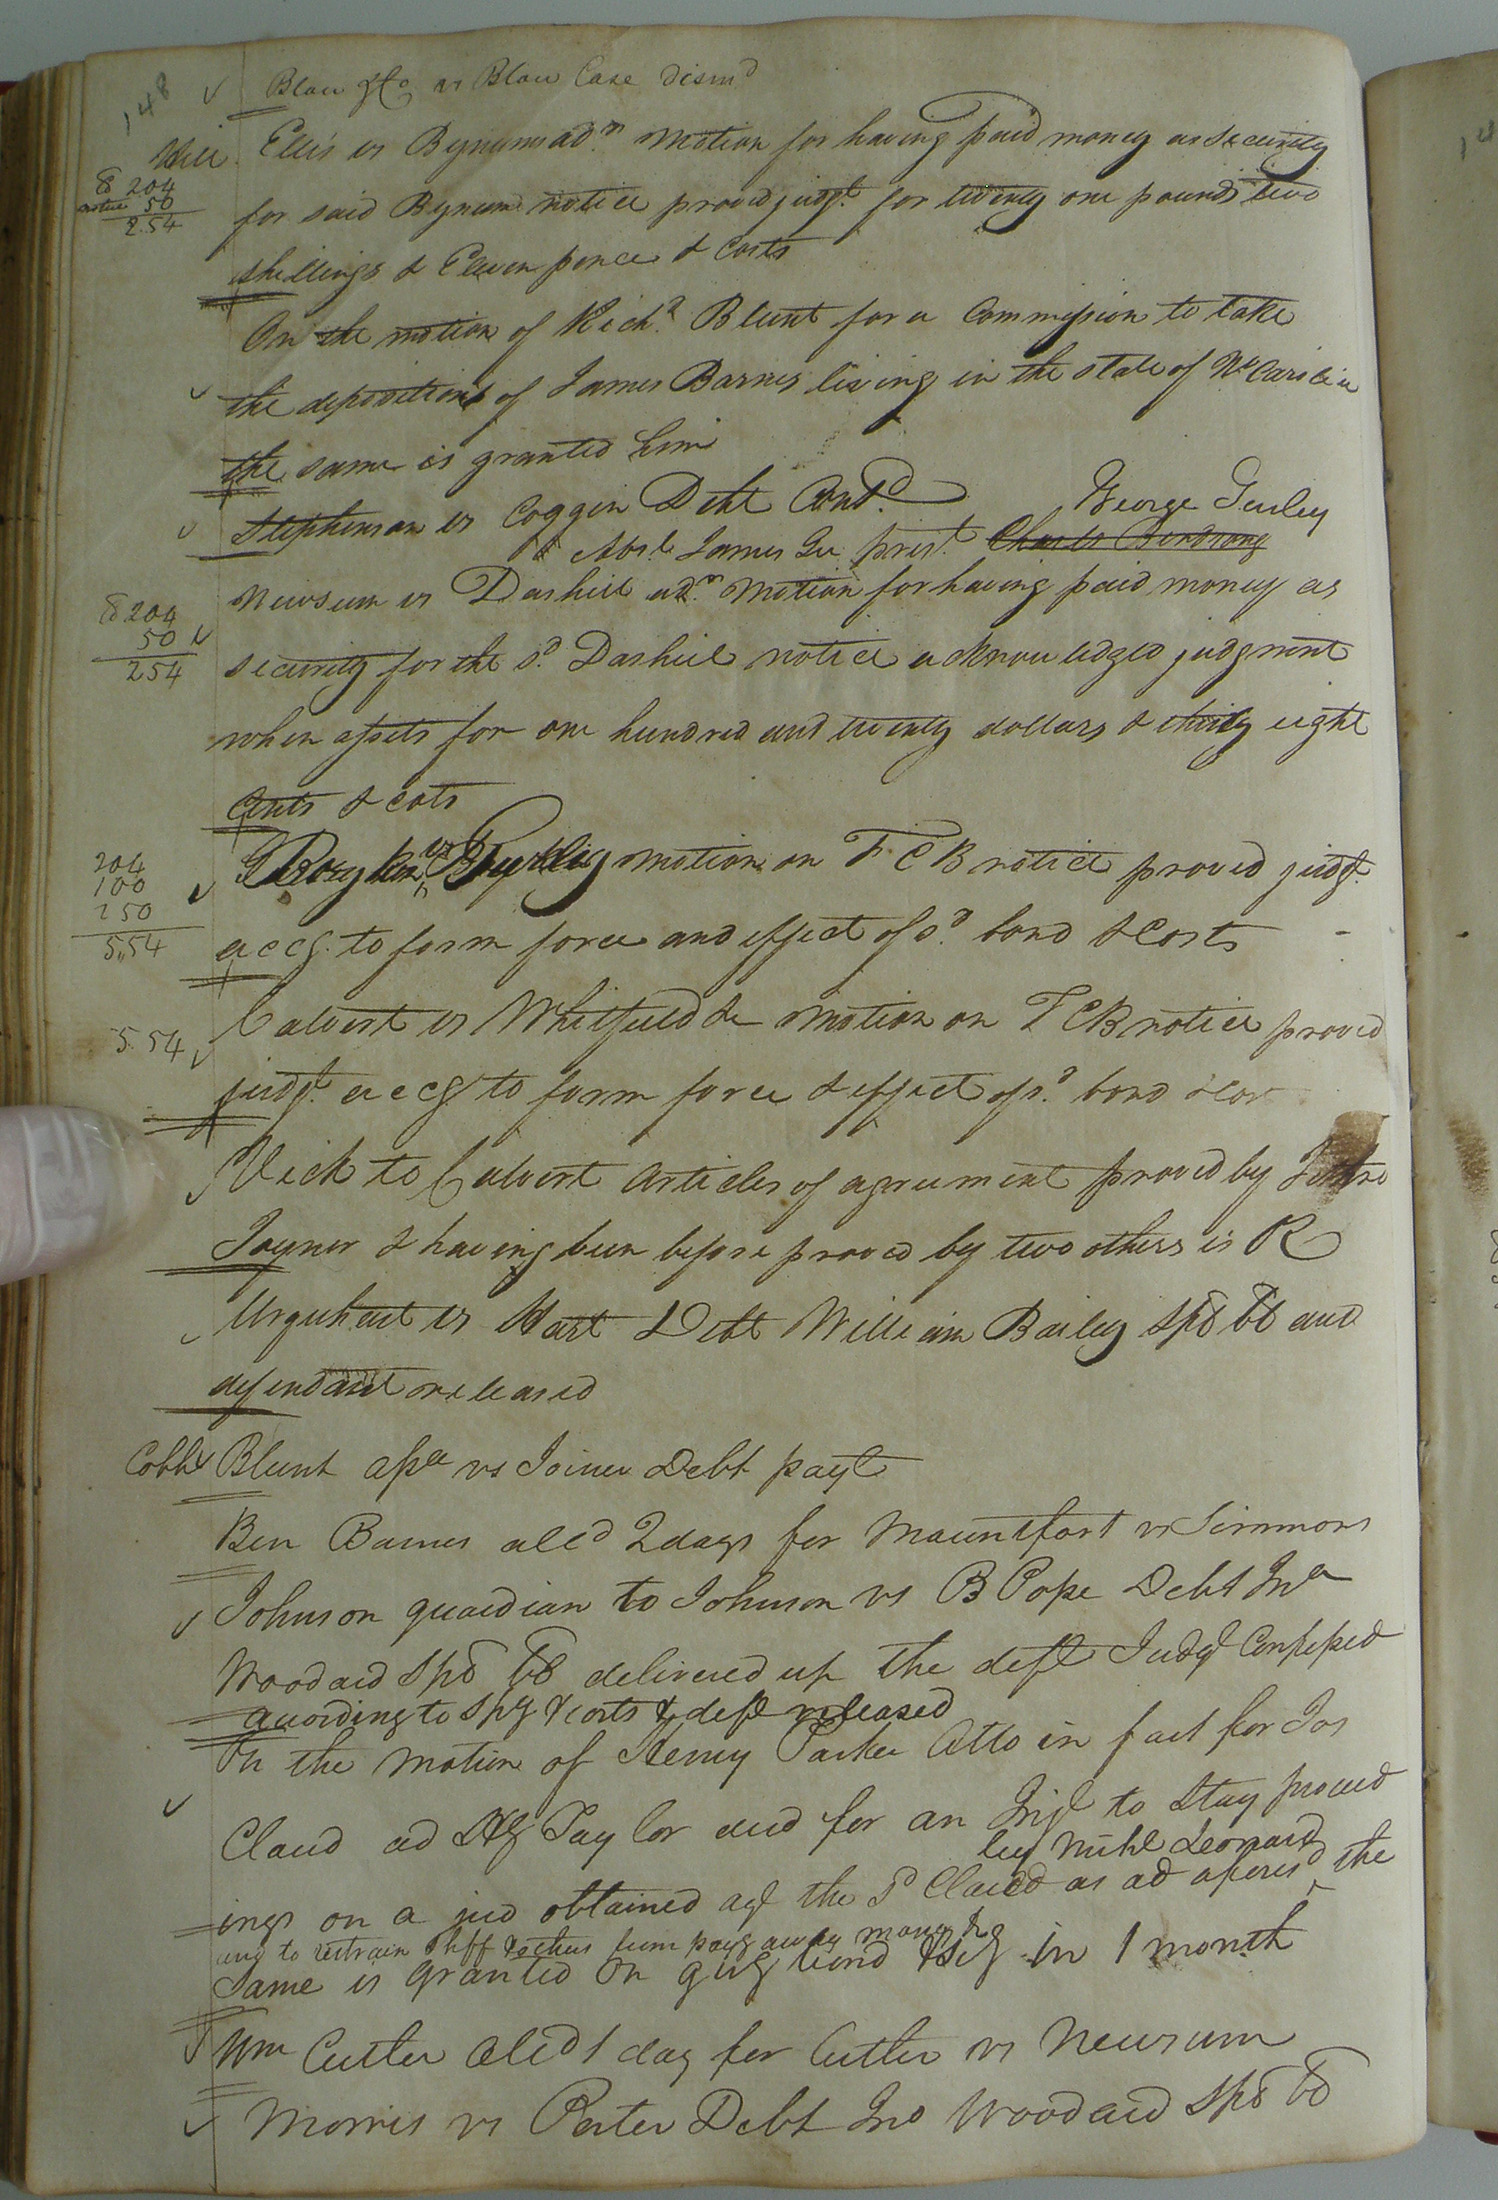 148
Blow &Co vs Blow Case dismd
Ellis vs Bynums adm. Motion for having paid money as security
204
notice 50
2.54
for said Bynum notice proved judgt. for twenty one pounds two
shillings & Eleven pence & Costs
On the motion of Richd. Blunt for a Commission to take
the deposition of James Barnes living in the state of No Carolina
the same is granted him
Stephenson vs Coggin Debt Contd.
George Gurley
Absl. James Gee prest.
Newsum vs Dashiel adm. Motion for having paid money as
204
50
254
security for the sd. Dashiel notice acknowledged judgment
when assets for one hundred and twenty dollars & thirty eight
Cents & cots
204
100
250
5,,54
motion on F C B notice proved judgt.
accg. to form force and effect of sd. bond & Costs
Calvert vs Whitfield &c motion on F C B notice proved
5.54
judgt. accg to form force & effect of sd. bond & Cos
Vick to Calvert Articles of agreement proved by
Joyner & having been before proved by two others is R
Urquhart vs Hart Debt William Bailey spd bd and
defendant released
Cobbs Blunt apee vs Joiner Debt payt
Ben Barnes alld 2 days for Mountfort vs Simmons
Johnson guardian to Johnson vs B Pope Debt Jno
Woodard spd bd delivered up the deft Judgt Confessed
according to spy & costs & deft released
On the motion of Henry Parker Atto in fact for Jos
Claud ad Taylor decd for an Injt to stay proceed
by Michl Leonard
ings on a jud obtained agt the sd Claud as ad aforesd, the
and to restrain Shff & others from payg away money &c
Same is granted on givg bond & sey in 1 month
Wm Cutler alld 1 day for Cutler vs Newsum
Morris vs Porter Debt Jno Woodard spd bd